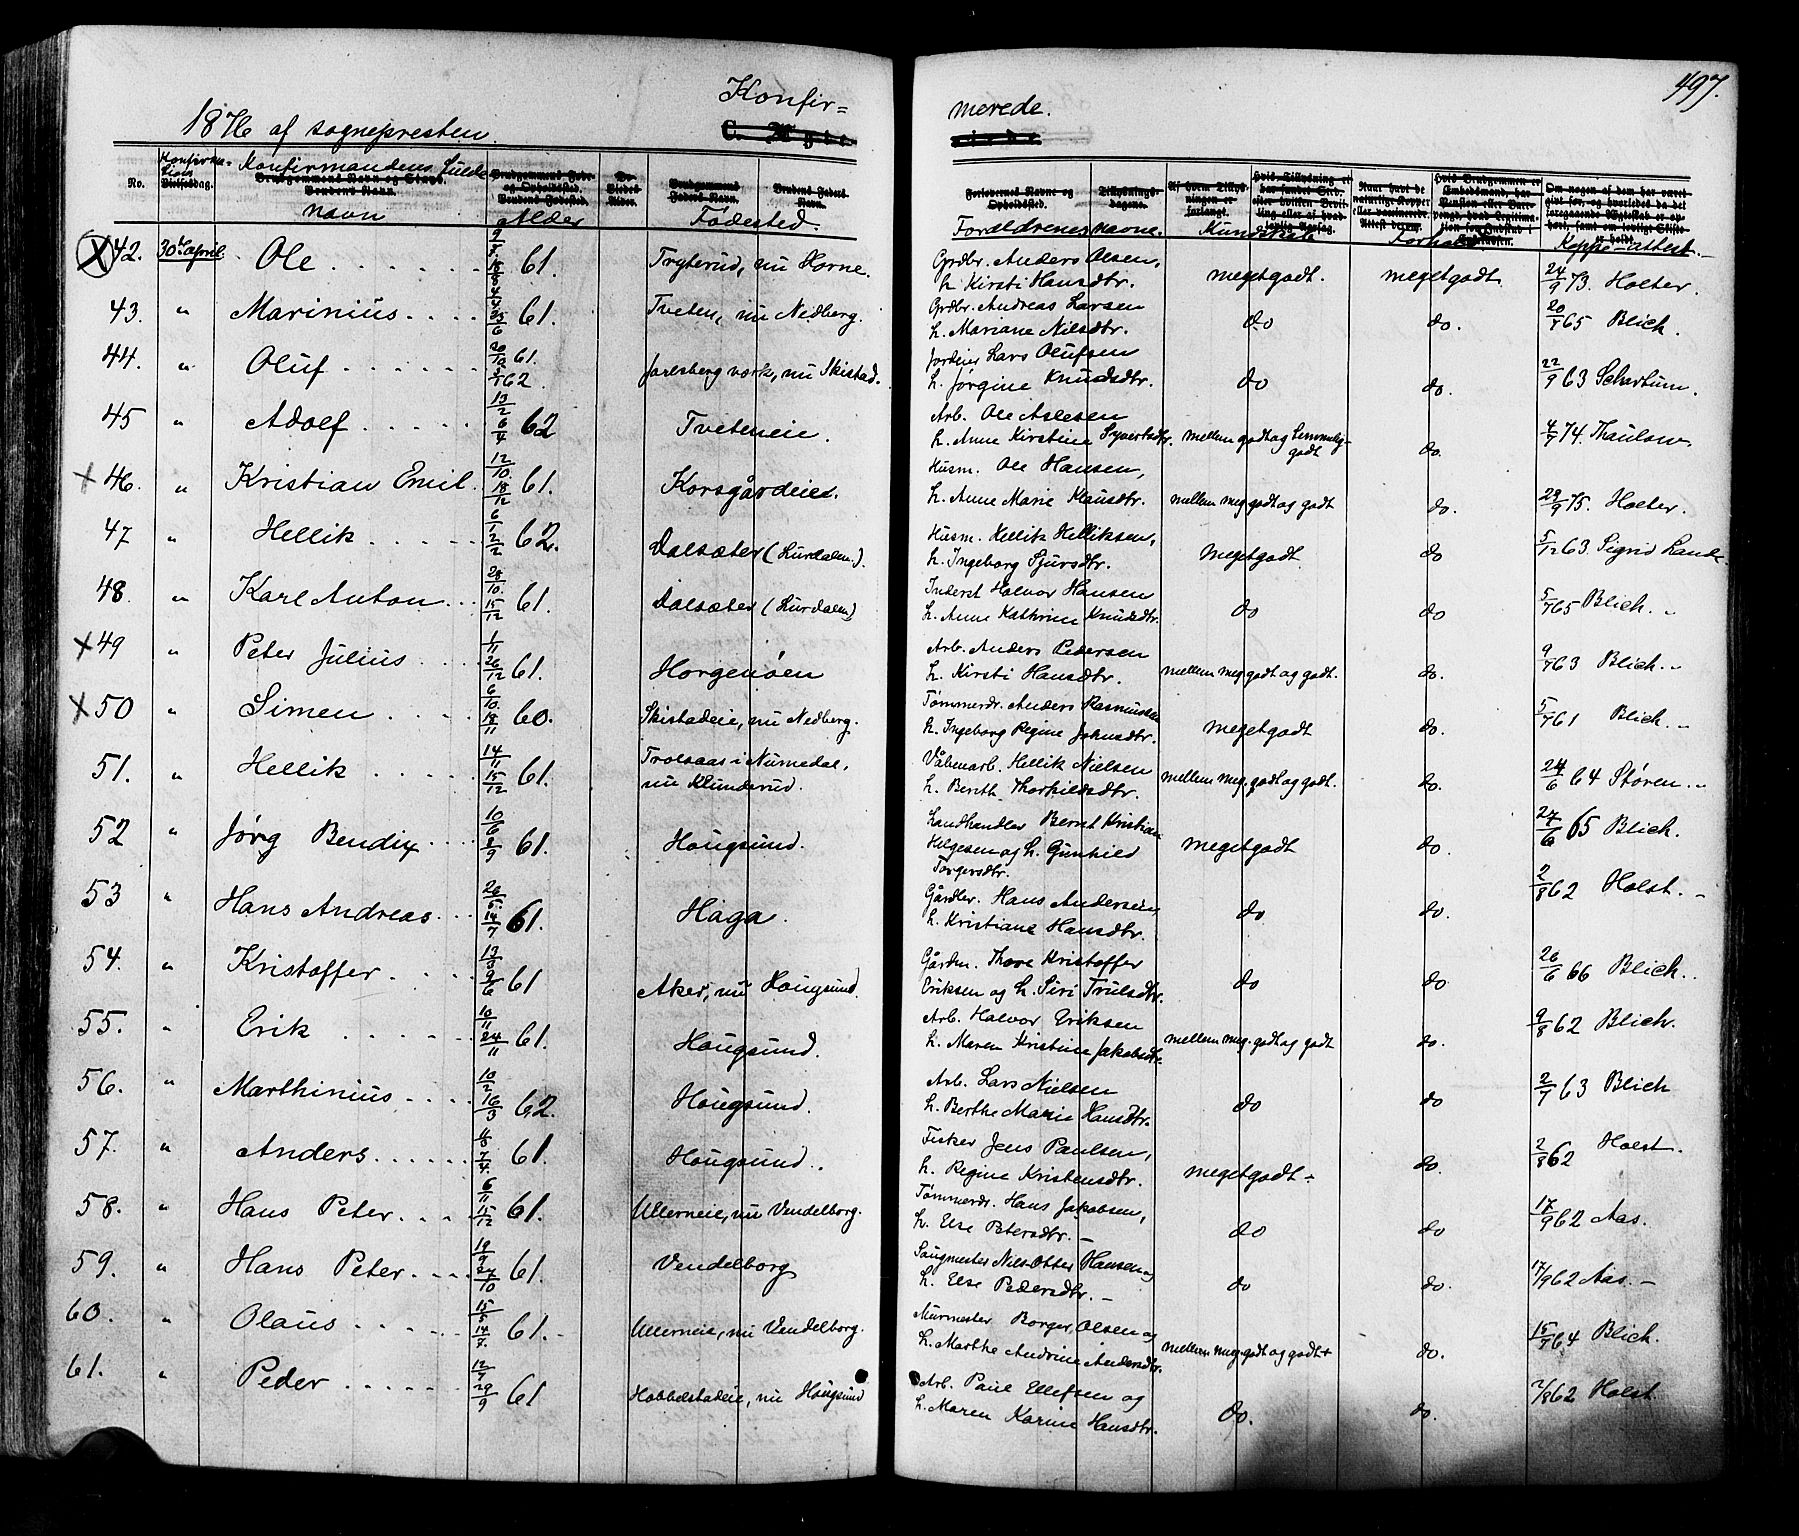 497.
Konfir= merede.
1876 af sognepresten.
No. Konfirma=tions dag. Konfirmandens fulde navn Alder Fødested. Forældrenes navne. Kundskab Forhold Koppe-attest.
42. 30te april. Ole 61. Tryterud, nu Horne. Grdbr. Anders Olsen, megetgodt. megetgodt. 24/9 73 Holter.
h. Kirsti Hansdtr.
43. " Marinius 25/6 61. Tveten, nu Nedberg. Grdbr. Andreas Larsen do do. 20/7 65 Blich.
h. Mariane Nilsdtr.
44. " Oluf 61. Jarlsberg værk, nu Skistad. Lars Olufsen do do. 22/9 63 Schartum.
5/1 62. h. Jørgine Knudsdtr.
45 " Adolf 13/2 6/4 62 Tveteneie. Arb. Ole Aslesen mellem godt og temmelig godt do. 4/7 74. Thaulow.
h. Anne Kirstine Syvertsdtr.
46. " Kristian Emil 12/10. 18/12 61. Korsgårdeie. Husm. Ole Hansen, mellem meg. godt og godt do. 29/9 75. Holter.
h. Anne Marie Klausdtr.
47 " Hellik 6/1 2/2 62. Dalsæter (Lurdalen). Husm. Hellik Helliksen, megetgodt do 5/12 63. Sigrid Lande
h. Ingeborg Sjursdtr.
48. " Karl Anton 28/10. 15/12 61. Dalsæter (Lurdalen) Inderst Halvor Hansen do do 5/7 65 Blich.
h. Anne Kathrine Knudsdtr.
49 " Peter Julius 1/11 26/12 61. Horgenøen Arb. Anders Pedersen mellem meg. godt og godt. do. 9/7 63 Blich.
h. Kirsti Hansdtr.
50 " Simen 6/10. 18/11 60. Skistadeie, nu Nedberg. Tømmerdr. Anders Rasmussen megetgodt do. 5/7 61 Blich.
h. Ingeborg Regine Johnsdtr.
51. " Hellik 14/11 15/12 61. Trolsaas i Numedal, nu Klunderud. Våbenarb. Hellik Nielsen mellem meg. godt og godt. do. 24/6 64 Støren
h. Berith Thorkildsdtr.
52 " Jørg Bendix 10/6 8/9 61. Hougsund. Landhandler Bernt Kristian megetgodt do. 27/6 65 Blich.
Helgesen og h. Gunhild
Torgersdtr.
53 " Hans Andreas 14/7 61. Haga. Gårdbr. Hans Andersen, do do. 2/8 62 Holst.
h. Kristiane Hansdtr.
54. " Kristoffer 61 Aker, nu Hougsund. Thore Kristoffer do do 26/6 66 Blich.
Eriksen og h. Siri Trulsdtr.
55. " Erik 10/11 24/11 61. Hougsund. Arb. Halvor Eriksen mellem meg. godt og godt do. 9/8 62 Blich.
h. Maren Kristine Jakobsdtr.
56. " Marthinius 10/2 16/3 62. Hougsund. Arb. Lars Nielsen do do 2/7 63 Blich
h. Berthe Marie Hansdtr.
57. " Anders 7/4. 61. Hougsund. Fisker Jens Paulsen, megetgodt do. 2/8 62 Holst.
h. Regine Kristensdtr.
58. " Hans Peter 6/11 15/12 61. Ullerneie, nu Vendelborg. Tømmerdr. Hans Jakobsen, do do 17/9 62 Aas.
h. Else Petersdtr.
59. " Hans Peter 19/9 27/10 61. Vendelborg Saugmester Nils Otter Hansen og do do. 17/9 62 Aas.
h. Else Pedersdtr.
60. " Olaus 15/5 14/7. 61. Ullerneie, nu Vendelborg. Murmester Borger Olsen og mellem meg. godt og godt do. 15/7 64 Blich.
h. Marthe Andrine Andersdtr.
61. " Peder 12/7 29/9 61 Hobbelstadeie, nu Hougsund Arb. Paul Ellefsen og do. do. 2/8 62 Holst
h. Maren Karine Hansdtr.